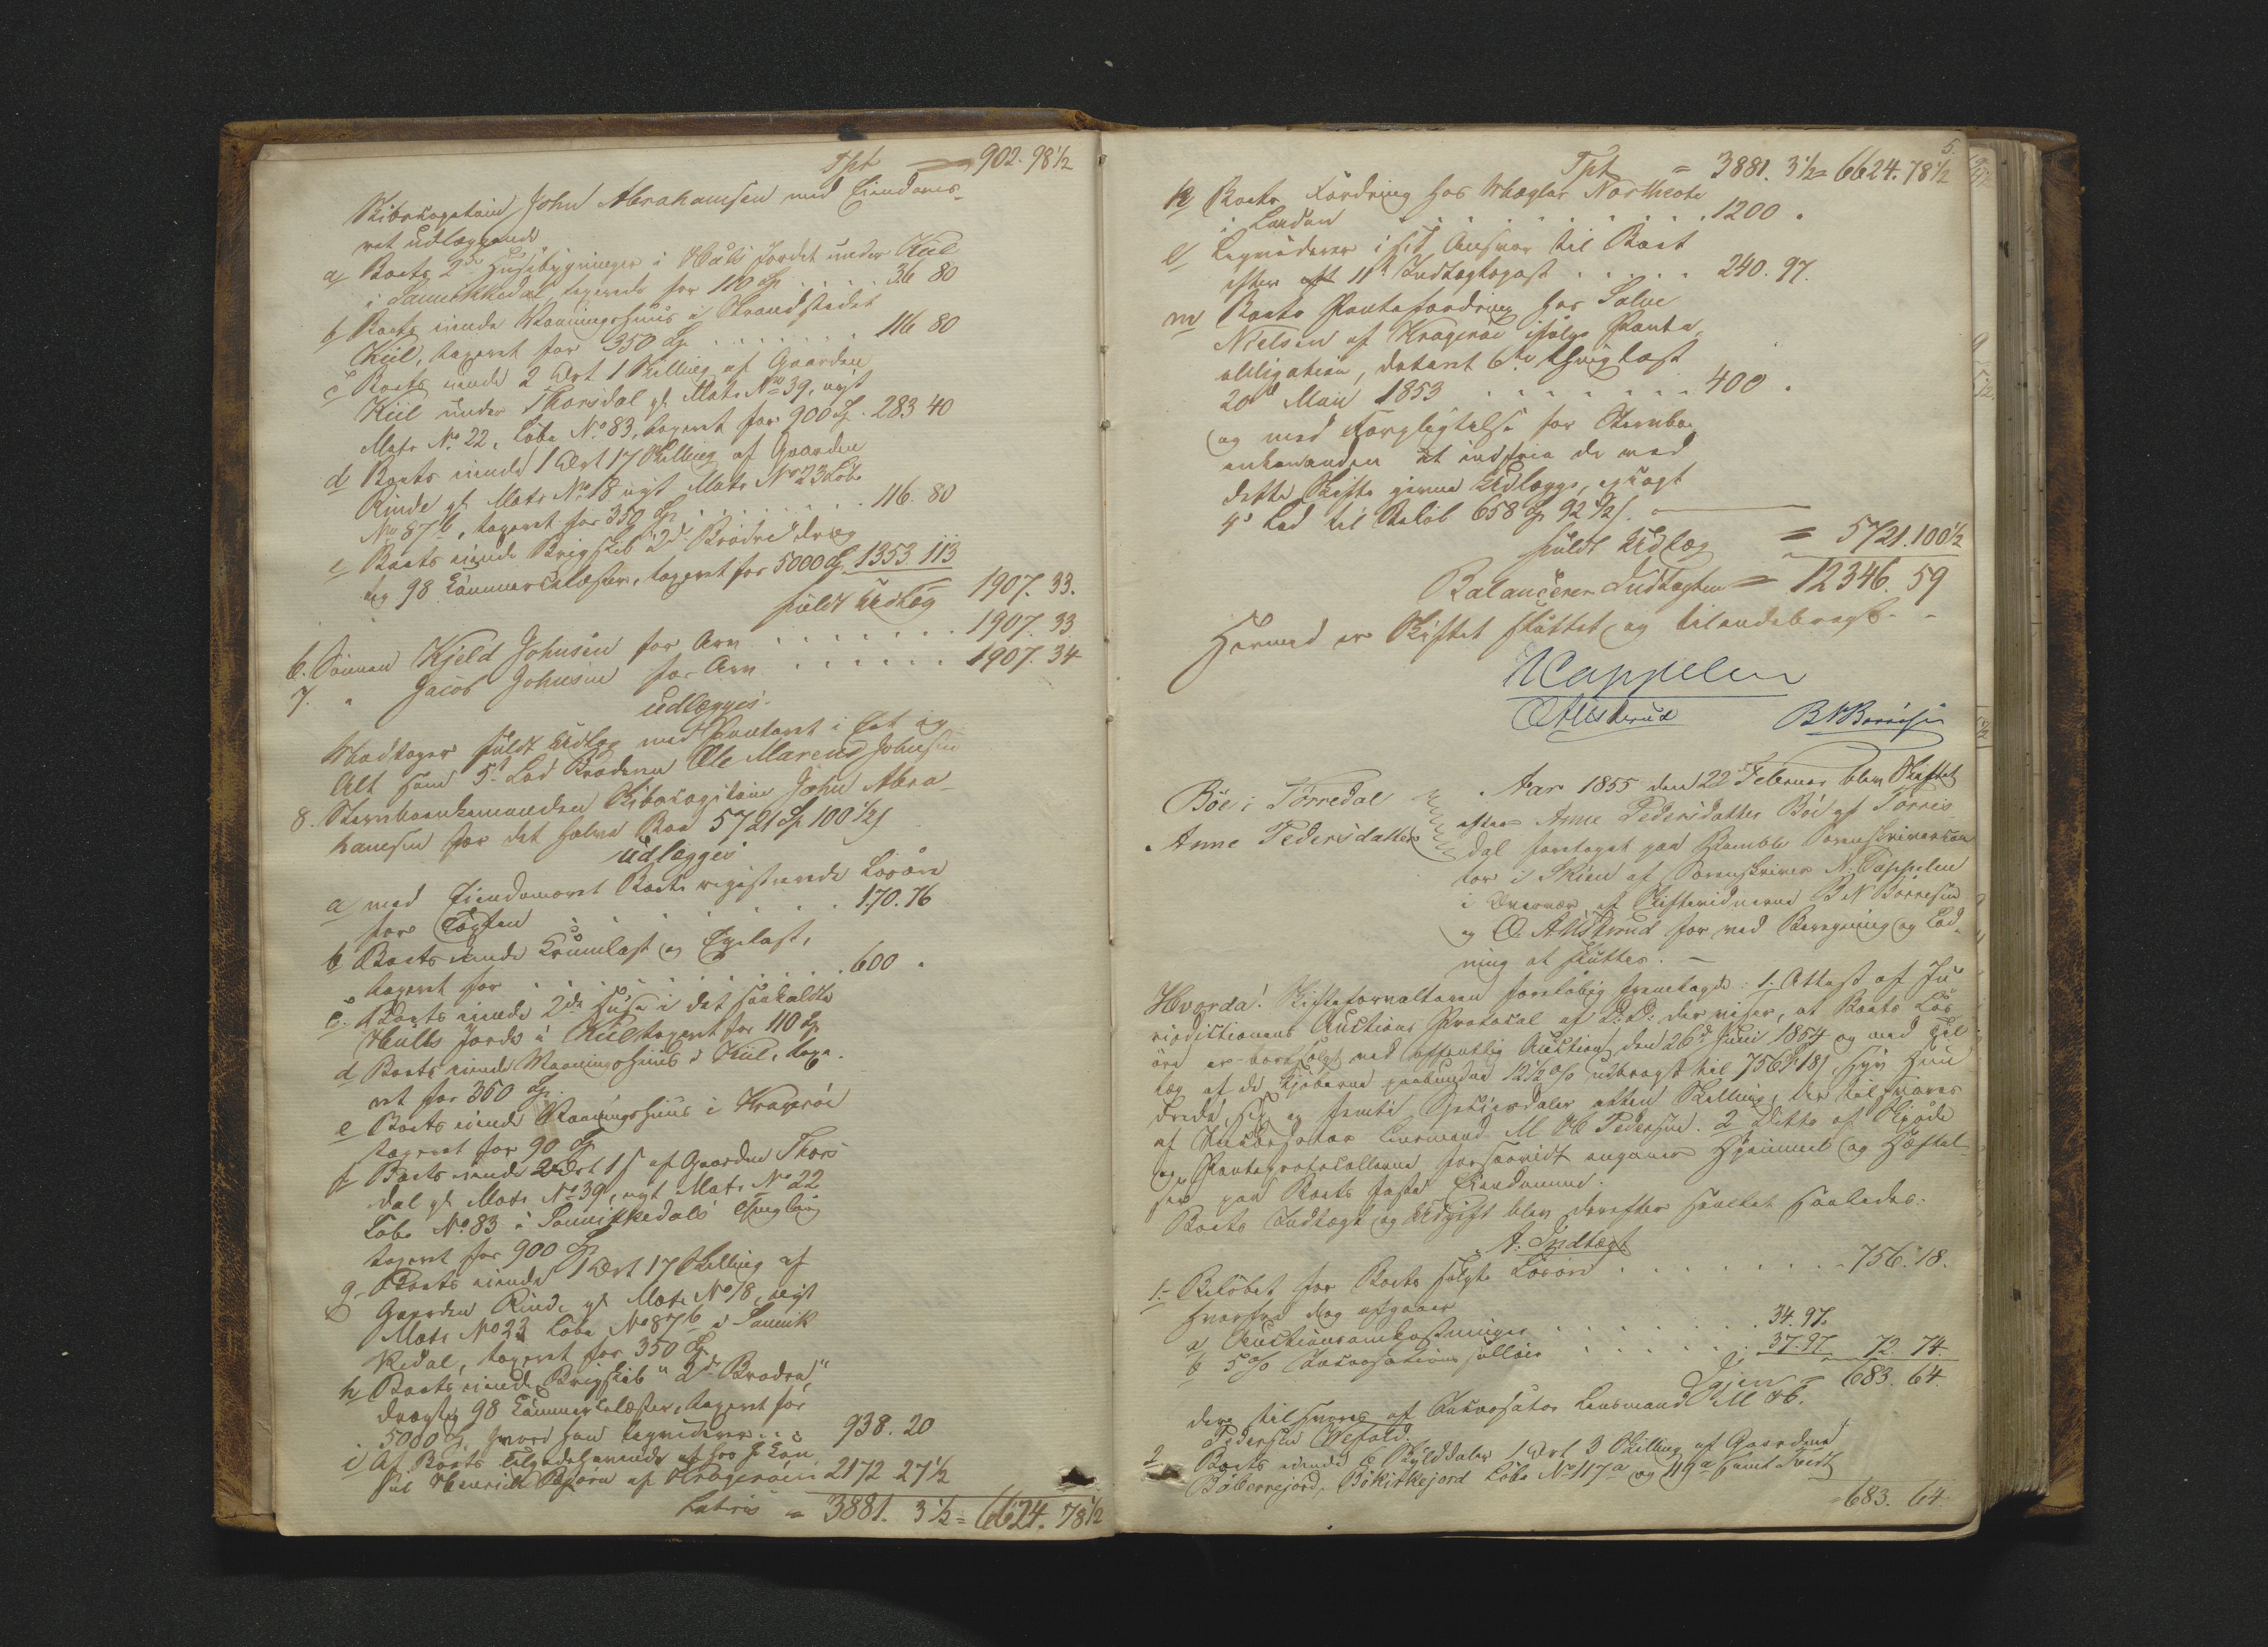 Tpt = 902. 98½
Skibscapitain John Abrahamsen med Eiendoms-
ret udlæggende
a/ Boets 2de Huusebygninger i Hulls Jordet under Kiil
i Sannikkedal taxerede for 110 Sp . . . . 36 80
b/ Boets eiende Vaaningshuus i Strandstedet
Kiil, taxeret for 350 Sp . . . . . . . 116 80
c/ Boets eiende 2 Ort 1 Skilling af Gaarden
Kiil under Thorsdal gl. Matr No 39, nyt
Matr No. 22, Løbe No. 83, taxeret for 900 Sp. 283 40
d Boets eiende 1 Ort 17 Skilling af Gaarden
Rinde gl. Matr No 18 nyt Matr No 23 Løbe
No 87b, taxeret for 350 Sp. . . . . . . 116. 80
e/ Boets eiende Brigskib 2de Brødre dræg
tig 98 Commercelæster, taxeret for 5000 Sp 1353. 113
fuldt Udlæg 1907. 33.
6. Sønnen Kjeld Johnsen for Arv . . . . . . . 1907. 33
7. " Jacob Johnsen for Arv . . . . . . 1907. 34
udlægges
Modtager fuldt Udlæg med Panteret i Eet og
Alt som 5t Lod Broderen Ole Marenus Johnsen
8. Stervboenkemanden Skibscapitain John Abra-
hamsen for det halve Boe 5721 Sp 100½ s
udlægges
a/ med Eiendomsret Boets registrerede Løsøre
for Taxten . . . . . . . . 170. 76
b Boets eiende Krumlast og Egelast,
taxeret for . . . . . . . . 600 .
c. Boets eiende 2de Huse i det saakaldte
Hulls Jorde i Kiil taxeret for 110 Sp
d Boets eiende Vaaningshuus i Kiil, taxe-
ret for 350 Sp.
e Boets eiende Vaaningshuus i Kragerøe
taxeret for 90 Sp
f Boets eiende 2 Ort 1 s af Gaarden Thors
dal gl. Matr No 39, nyt Matr No 22
Løbe No. 83 i Sannikkedals Thinglaug
taxeret for 900 Sp
g. Boets eiende 1 Ort 17 Skilling af
Gaarden Rinde gl. Matr No 18, nyt
Matr No 23 Løbe No 87b i Sannik
kedal, taxeret for 350 Sp.
h Boets eiende Brigskib "2de Brødre,"
drægtig 98 Commercelæster, taxeret for
5000 Sp, hvori han liqviderer . . . 938. 20
i Af Boets Tilgodehavende hos
Henrich Bjørn af Kragerøen 2172 27½
Lateris = 3881. 3½ = 6624. 78½
5.
Tpt = 3881. 3½ = 6624. 78½
k Boets Fordring hos Mægler Northcote
i London . . . . . . . . . . 1200 .
l/ Liqviderer i sit Ansvar til Boet
efter 11te Indtægtspost . . . . . 240. 97.
m Boets Pantefordring hos Salve
Nielsen af Kragerøe ifølge Pante
obligation, dateret 6te thinglæst
20de Mai 1853 . . . . . . . . 400 .
og med Forpligtelse for Stervbo
enkemanden at indfrie de ved
dette Skifte givne Udlægge,
4de Lod til Beløb 658 Sp 92½ s.
fuldt Udlæg = 5721. 100½
Balancerer Indtægten = 12346. 59
Hermed er Skiftet sluttet og tilendebragt. -
NCappelen
OAllskrud BNBørresen
Bøe i Tørredal
Anne Pedersdatter
Aar 1855 den 22 Februar blev Skiftet
efter Anne Pedersdatter Bøe af Tørris
dal foretaget paa Bamble Sorenskriverkon
tor i Skien af Sorenskriver N. Cappelen
i Overvær af Skiftevidnerne B N Børresen
og O. Allskrud for ved Beregning og Lod
ning at sluttes. -
Hvorda! Skifteforvalteren foreløbig fremlagde: 1. Attest af Ju
risdictionens Auctions Protocol af D: D: der viser, at Boets Løs
øre er bortsolgt ved offentlig Auction den 26de Juni 1854 og med Til
læg af de Kjøberne paabundne 12½ % udbragt til 756 Sp 18 s, syv Hun
drede, sex og femti Speciesdaler atten Skilling, der tilsvares
af Incassator Lensmand M Ob Pedersen. 2 Ditto af Skjøde
og Panteprotocollerne forsaavidt angaaer Hjemmel og Hæftel-
ser paa Boets faste Eiendomme.
Boets Indtægt og Udgift blev derefter stillet saaledes.
A. Indtægt
1. Beløbet for Boets solgte Løsøre . . . . . . . 756. 18.
hvorfra dog afgaaer
a Auctionsomkostninger . . . . . . . 34. 97.
b 5 % Incassations sallair . . . . . . 37. 97 72. 74.
Igjen = 683. 64
der tilsvares af Incassator Lensmand M Ob.
Pedersen Ulefos
2 Boets eiende 6 Skylddaler 1 Ort 3 Skilling af Gaardene
Løbe No 117a og 119a samt
= 683. 64